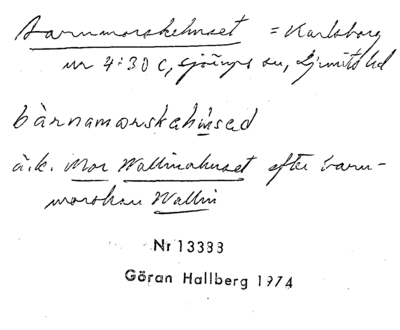 Barnmorskehuset = Karlsborg
nr 4:30 c,
bàrnamorskahùsed
ä.k. Mor Wallinahuset efter barn-
morskan Wallin
Nr 13383
Göran Hallberg 1974